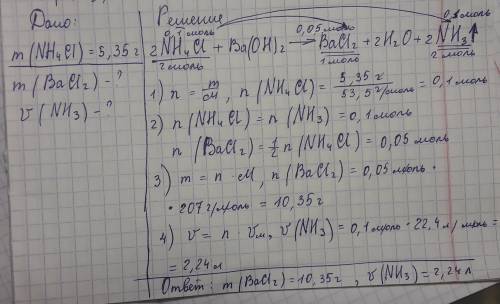 Дано:
m(NH₄Cl)=5,35г
m(BaCl₂)-?
V(NH₃)-?
Решение
0,1моль 0,05моль 0,1моль
2NH₄Cl + Ba(OH)₂ → BaCl₂ + 2H₂O + 2NH₃↑
2моль 1моль 2моль
1) n = m/M, n(NH₄Cl) = 5,35г / 53,5г/моль = 0,1моль
2) n(NH₄Cl) = n(NH₃) = 0,1моль
n(BaCl₂) = 1/2 n(NH₄Cl) = 0,05 моль
3) m = n · M, n(BaCl₂) = 0,05моль ·
· 207г/моль = 10,35г
4) V = n · Vм, V(NH₃) = 0,1моль · 22,4л/моль =
= 2,24л
Ответ: m(BaCl₂) = 10,35г, V(NH₃) = 2,24л